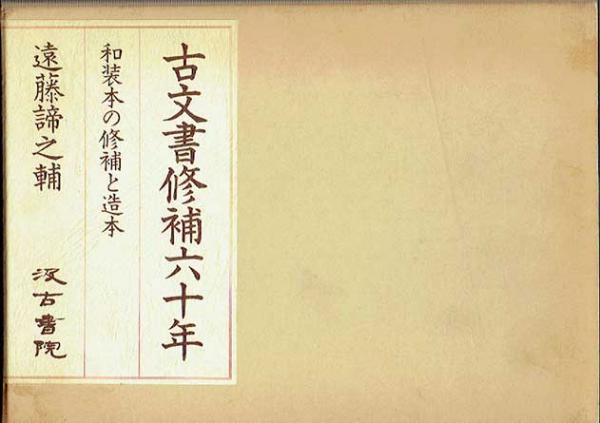 古文書修補六十年
和装本の修補と造本
遠藤諦之輔
汲古書院